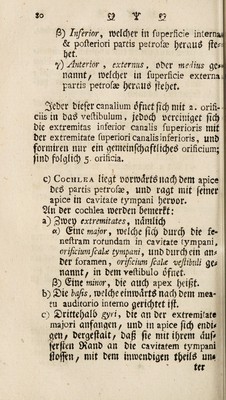 20 ღ Ψ ღ
β) Inferior, welcher in superficie interna
& posteriori partis petrosæ heraus ste=
het.
γ) Anterior, externus, oder medius ge=
nannt, welcher in superficie externa
partis petrosæ heraus stehet.
Jeder dieser canalium öfnet sich mit 2. orifi-
ciis in das vestibulum, jedoch vereiniget sich
die extremitas inferior canalis superioris mit
der extremitate superiori canalis inferioris, und
formiren nur ein gemeinschaftliches orificium;
sind folglich 5. orificia.
c) COCHLEA liegt vorwärts nach dem apice
des partis petrosæ, und ragt mit seiner
apice in cavitate tympani hervor.
An der cochlea werden bemerkt:
a) Zwey extremitates, nämlich
α) Eine major, welche sich durch die fe-
nestram rotundam in cavitate tympani,
orificium scalæ tympani, und durch ein an=
der foramen, orificium scalæ vestibuli ge=
nannt, in dem vestibulo öfnet.
β) Eine minor, die auch apex heißt.
b) Die basis, welche einwärts nach dem mea-
tu auditorio interno gerichtet ist.
c) Drittehalb gyri, die an der extremitate
majori anfangen, und in apice sich endi=
gen, dergestalt, daß sie mit ihrem äus=
sersten Rand an die cavitatem tympani
stossen, mit dem inwendigen theils un=
ter